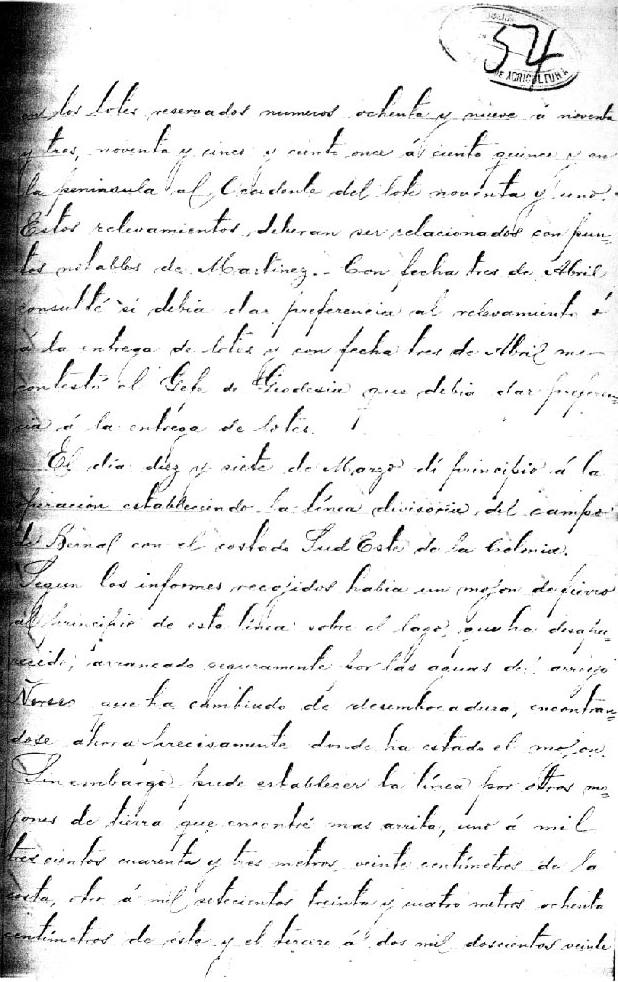 54
DE AGRICULTURA
en los lotes reservados numeros ochenta y nueve á noventa
y tres, noventa y cinco y ciento once á ciento quince y en
la peninsula al Occidente del lote noventa y uno.
Estos relevamientos deberan ser relacionados con pun-
tos notables de Martinez.- Con fecha tres de Abril
consulté si debia dar preferencia al relevamiento ó
á la entrega de lotes y con fecha tres de Abril me
contestó el Gefe de Geodesia que debia dar preferen-
cia á la entrega de lotes.
El dia diez y siete de Marzo dí principio á la
operacion estableciendo la línea divisoria del campo
de Bernal con el costado Sud Este de la Colonia.
Segun los informes recojidos habia un mojon de fierro
al principio de esta línea sobre el lago, que ha desapa-
recido, arrancado seguramente por las aguas del arroyo
que ha cambiado de desembocadura, encontran-
dose ahora precisamente donde ha estado el mojon.
Sin embargo pude establecer la línea por otros mo-
jones de tierra que encontré mas arriba, uno á mil
trescientos cuarenta y tres metros veinte centímetros de la
costa, otro á mil setecientos treinta y cuatro metros ochenta
centímetros de este y el tercero á dos mil doscientos veinte